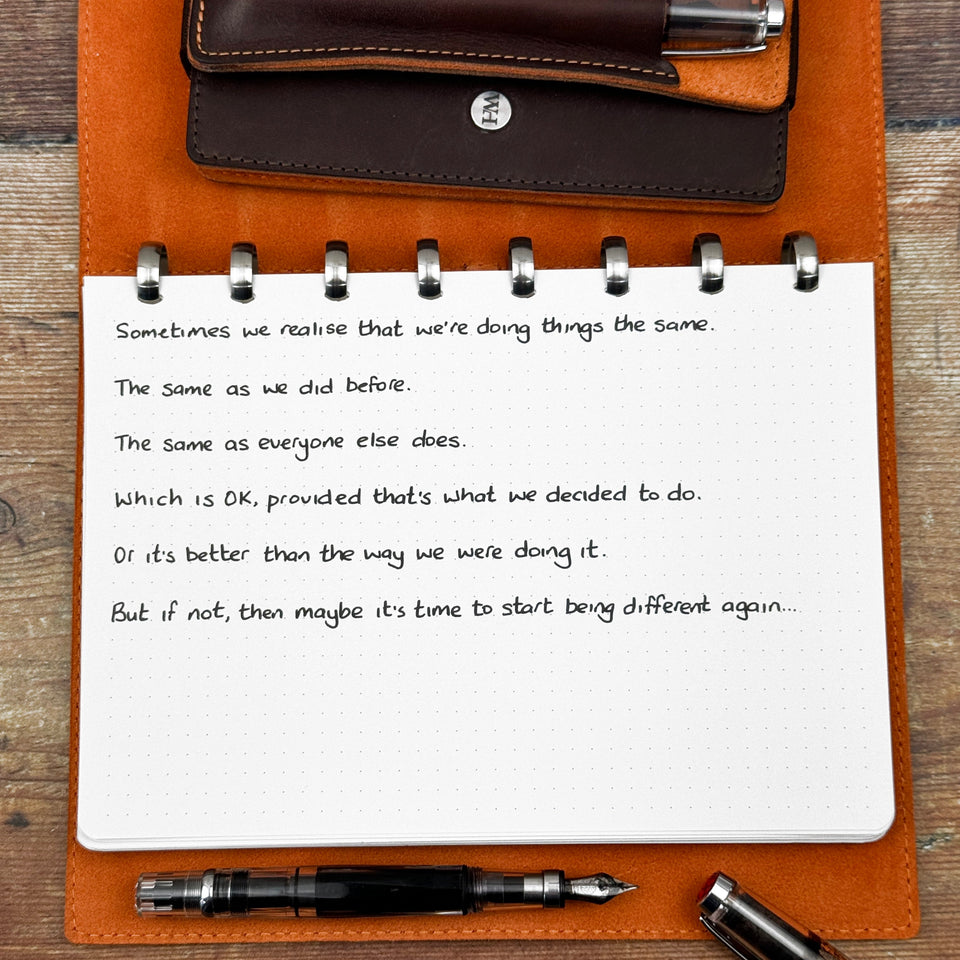 HM
Sometimes we realise that we're doing things the same.
The same as we did before.
The same as everyone else does.
Which is OK, provided that's what we decided to do.
Or it's better than the way we were doing it.
But if not, then maybe it's time to start being different again...